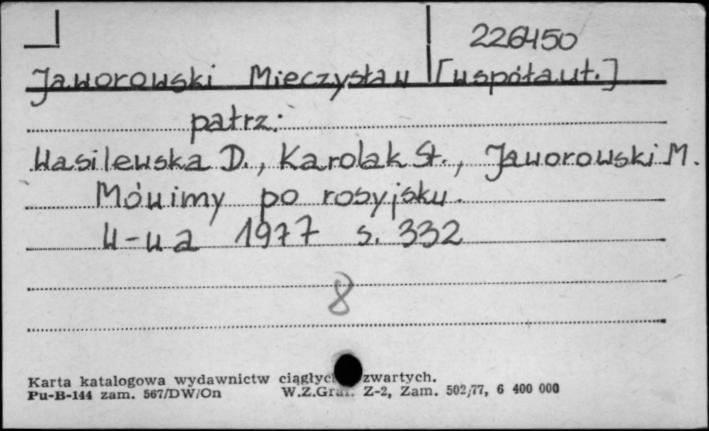 226450
Jaworowski Mieczysław [współaut.]
patrz:
Wasilewska D., Karolak St., Jaworowski M.
Mówimy po rosyjsku.
W-wa 1977 s. 332
8
Karta katalogowa wydawnictw zwartych.
Pu-B-144 zam. 567/DW/On W.Z.Graf. Z-2, Zam. 502/77, 6 400 000